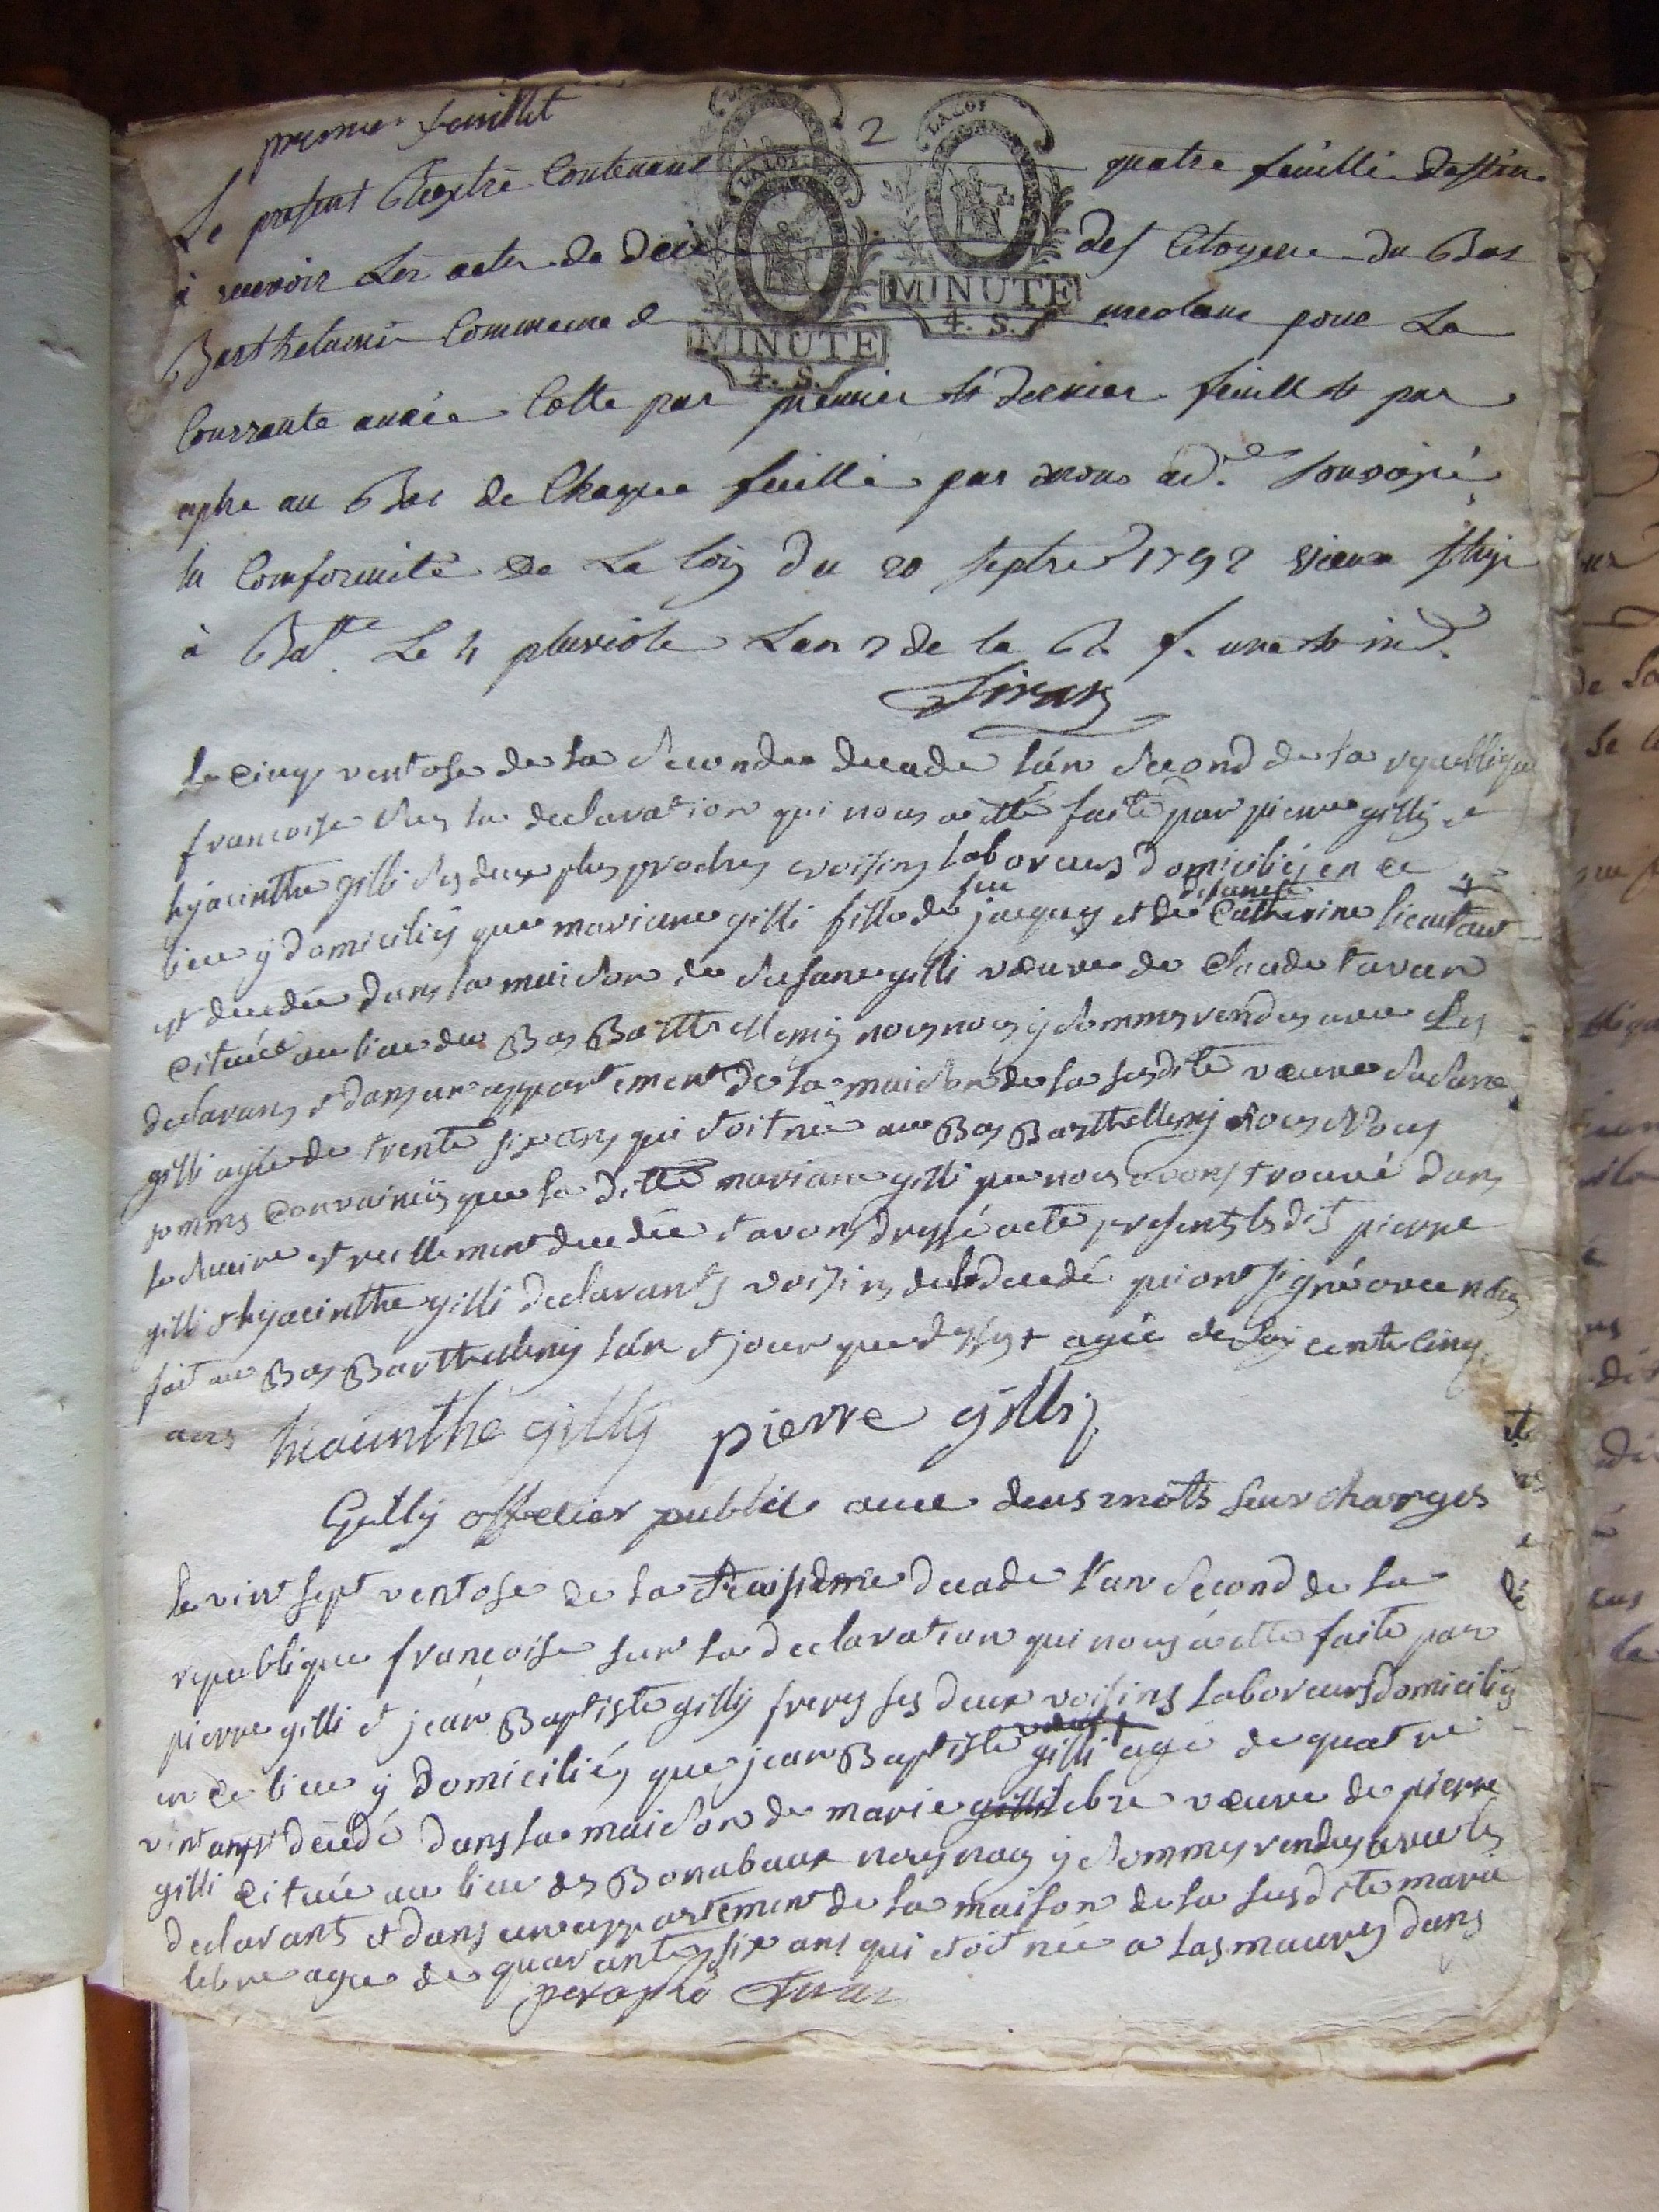 premier feuillet
2
LA LOY
LA LOY ET LE ROI
MINUTE
4. S.
MINUTE
4. S.
Le present Registre Contenant quatre feuille destine
à recevoir Les actes de decè des Citoyens du Bas
Barthelemi Commune d meolans pour La
Courrante année Cotte par premier et dernier feuillet par
aphe au Bas de Chaque feuille par nous ad.
la Comformité de La loy du 20 septre 1792 vieux stile
à Le 4 pluviose Lan 2 de la R. f. une et ind.
le cinq ventose de la seconde decade lán second de la republique
francoise sur la declaration qui nous a étté faite par pierre gilly et
hyacinthe gilli ses deux plus proches voisins laboreurs domiciliés en ce
lieu y domiciliés que mariane gilli fille de feu jacques et de defunte Catherine lieautaud
est decedée dans la maison de susane gilli vœuve de Claude tavan
cituée au lieu du Bas Barthellemy nous nous y sommes rendus avec les
declarans et dans un appartement de la maison de la susdite vœuve susane
gilli agée de trente six ans qui etoit née au Bas Barthellemy nous nous
sommes convaincus que la ditte mariane gilli que nous avons trouvé dans
le suaire et reellement decedée et avons dressé acte presents lesdits pierre
gilli et hyacinthe gilli declarants voisins de la decedé qui ont signé avec nous
fait au Bas Barthellemy lán et jour que dessus + agée de soy cente cinq
ans hiacinthe gilly pierre gilly
Gilly officier public avec deus mots surcharges
le vint sept ventose de la troisieme decade l'an second de la
republique francoise sur la declaration qui nous a étté faite par
pierre gilli et jean Baptiste gilly freres ses deux voisins laboreurs domiciliés
en ce lieu y domiciliés que jean Baptiste gilli agé de quatre
vint ans est decedé dans la maison de marie gilli lebre vœuve de pierre
gilli cituée au lieu des Bonabaux nous nous y sommes rendus avec les
declarants et dans un appartement de la maison de la susdite marie
lebre agée de quarante six ans qui etoit née a las maures dans
paraphé